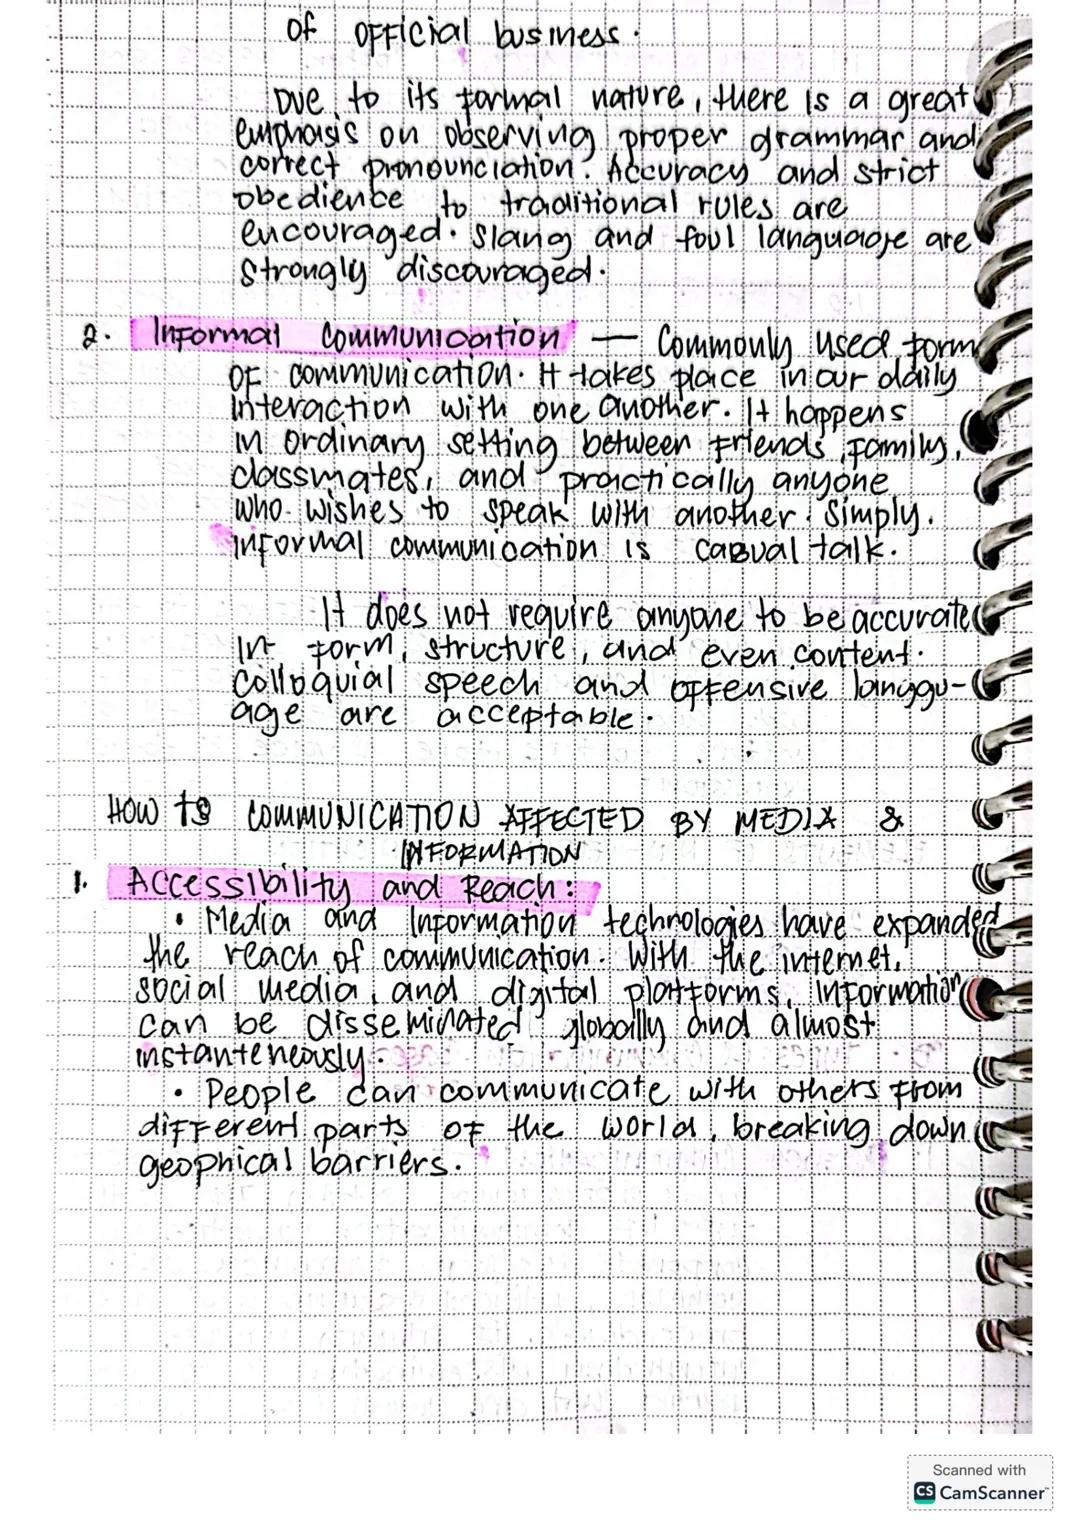 of official business.
Due to its formal nature, there is a great
emphasis on observing proper grammar and
correct pronounciation. Accuracy and strict
obedience to traditional rules are
encouraged. Slang and foul language are
strongly discouraged.
2. Informal Communication — Commonly used form
of communication. It takes place in our daily
interaction with one another. It happens
in ordinary setting between friends, family,
classmates, and practically anyone
who wishes to speak with another. Simply,
informal communication is casual talk.
It does not require anyone to be accurate
in form, structure, and even content.
Colloquial speech and offensive langgu-
age are acceptable.
HOW IS COMMUNICATION AFFECTED BY MEDIA &
INFORMATION
1. Accessibility and Reach:
• Media and Information technologies have expanded
the reach of communication. With the internet,
social media, and digital platforms, information
can be disseminated globally and almost
instanteneously.
• People can communicate with others from
different parts of the world, breaking down
geophical barriers.
Scanned with
CS CamScanner